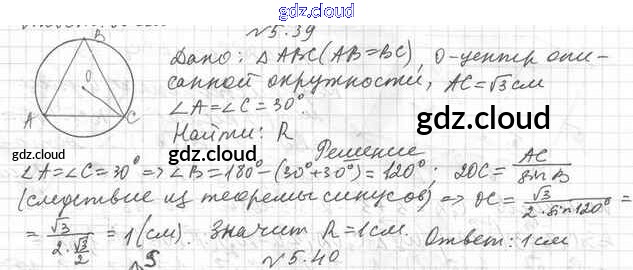 gdz.cloud
№5.39
B
O
A
C
Дано: △ABC (AB=BC), O-центр опи-
санной окружности, AC=√3см
∠A=∠C=30°.
Найти: R
gdz.cloud
gdz.cloud
Решение
gdz.cloud
∠A=∠C=30°⇒∠B=180°-(30°+30°)=120°; 2OC=AC/sinB
(следствие из теоремы синусов)⇒OC=√3/(2·sin120°)=
=√3/(2·√3/2)=1(см). Значит R=1см. Ответ: 1см
№5.40